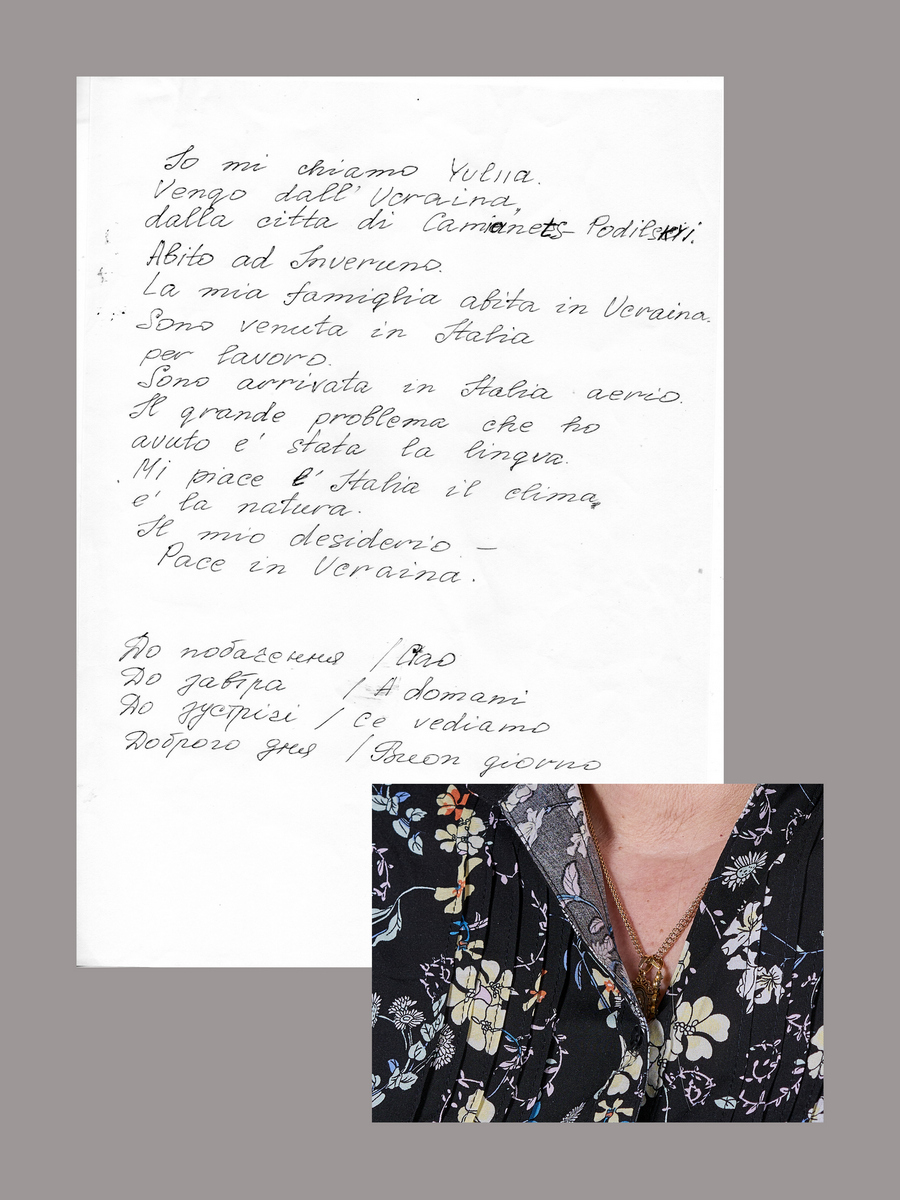 Io mi chiamo Yuliia.
Vengo dall' Ucraina,
dalla citta di Camianets-Podilskyi.
Abito ad Inveruno.
La mia famiglia abita in Ucraina.
Sono venuta in Italia
per lavoro.
Sono arrivata in Italia aerio.
Il grande problema che ho
avuto e' stata la lingva.
Mi piace l' Italia il clima,
e' la natura.
Il mio desiderio –
Pace in Ucraina.
До побачення / Ciao
До завтра / A domani
До зустрізі / ce vediamo
Доброго дня / Buon giorno